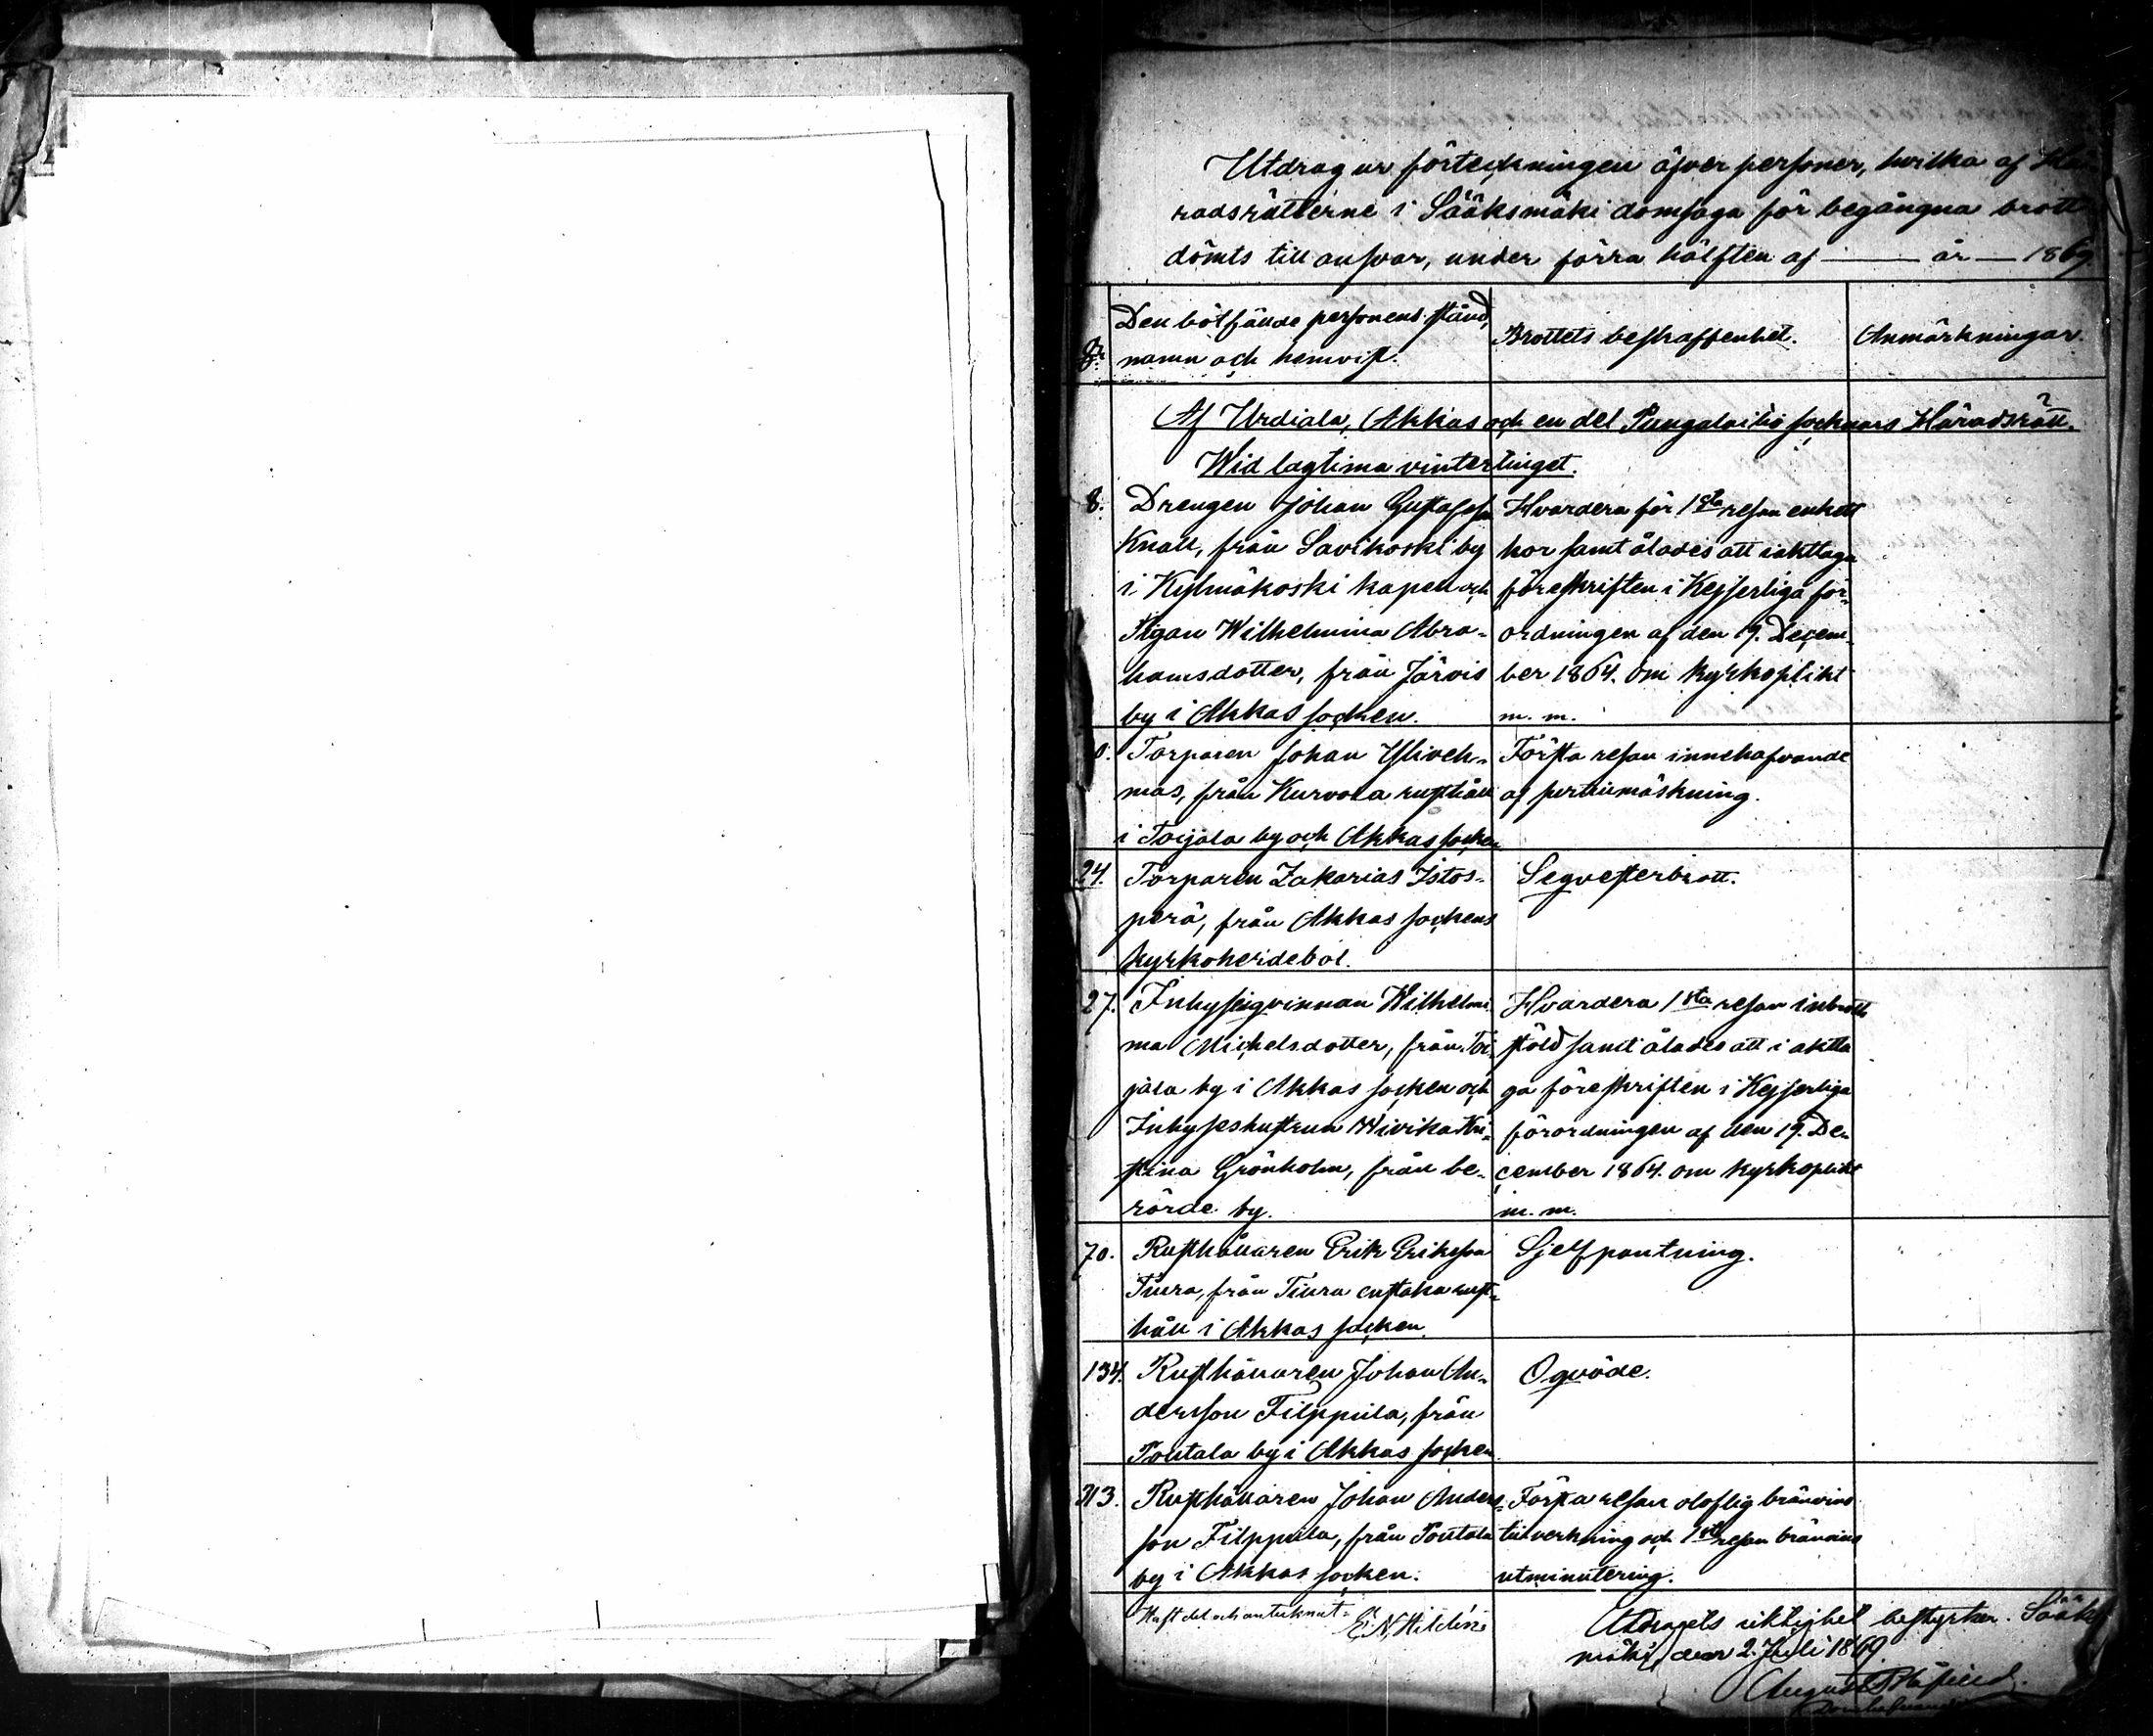 Utdrag ur förteckningen öfver personer, hvilka af Hä-
radsrätterne i Sääksmäki domsaga för begångna brott
dömts till ansvar, under förra hälften af — år — 1869.
Den bötfände personens stånd,
namn och hemvist.
Brottets beskaffenhet.
Anmärkningar.
Af Urdiala, Akkas och en del Pungalaitio socknars Häradsrätt.
Wid lagtima vintertinget.
8. Drengen Johan Gustafsson
Knall, från Savikoski by
i Kylmäkoski kapell och
Pigan Wilhelmina Abra-
hamsdotter, från Järvis
by i Akkas socken.
Hvardera för 1sta resan enkelt
hor samt ålades att iakttaga
föreskriften i Kejserliga för-
ordningen af den 19. Decem-
ber 1864. om kyrkoplikt
m. m.
0. Torparen Johan Yliveh-
mas, från Kurvola rusthåll
i Toijala by och Akkas socken
Första resan innehafvande
af mäskning.
24. Torparen Zakarias Istos-
perä, från Akkas sockens
kyrkoherdebol.
Segvesterbrott.
27. Inhysesqvinnan Wilhelmi-
na Michelsdotter, från Toi-
jala by i Akkas socken och
Inhyseshustrun Wivika Kri-
stina Grönholm, från be-
rörde by.
Hvardera 1sta resan inbrotts
stöld samt ålades att i aktta
ga föreskriften i Kejserliga
förordningen af den 19. De-
cember 1864. om kyrkoplikt
m. m.
70. Rusthållaren Erik Eriksson
Tiura, från Tiura enstaka rust-
håll i Akkas socken.
Sjelfpantning.
134. Rusthållaren Johan An-
dersson Filppula, från
Pontala by i Akkas socken.
Oqväde.
313. Rusthållaren Johan Anders-
son Filppula, från Pontala
by i Akkas socken.
Första resan oloflig bränvins
tillverkning och 1sta resan bränvins
utminutering.
Haft del och antecknat: E N Hildén
Utdragets riktighet bestyrker. Sääks
mäki, den 2. Juli 1869.
August